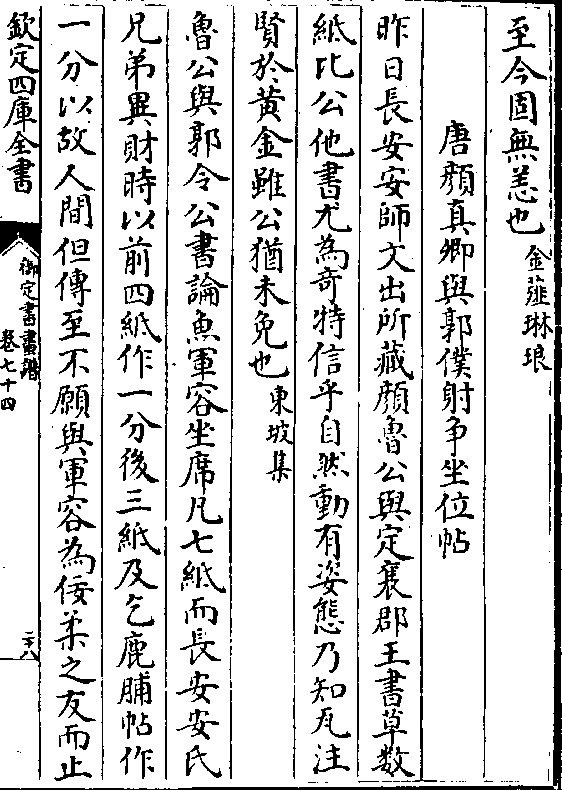 至今固無恙也金薤琳琅
唐顔真卿與郭僕射争坐位帖
昨日長安安師文出所藏顔魯公與定襄郡王書草數
紙比公他書尤為奇特信乎自然動有姿態乃知瓦注
賢於黄金雖公猶未免也東坡集
魯公與郭令公書論魚軍容坐席凡七紙而長安安氏
兄弟異財時以前四紙作一分後三紙及乞鹿脯帖作
一分以故人間但傳至不願與軍容為佞柔之友而止
欽定四庫全書
御定書畫譜
卷七十四
二十八